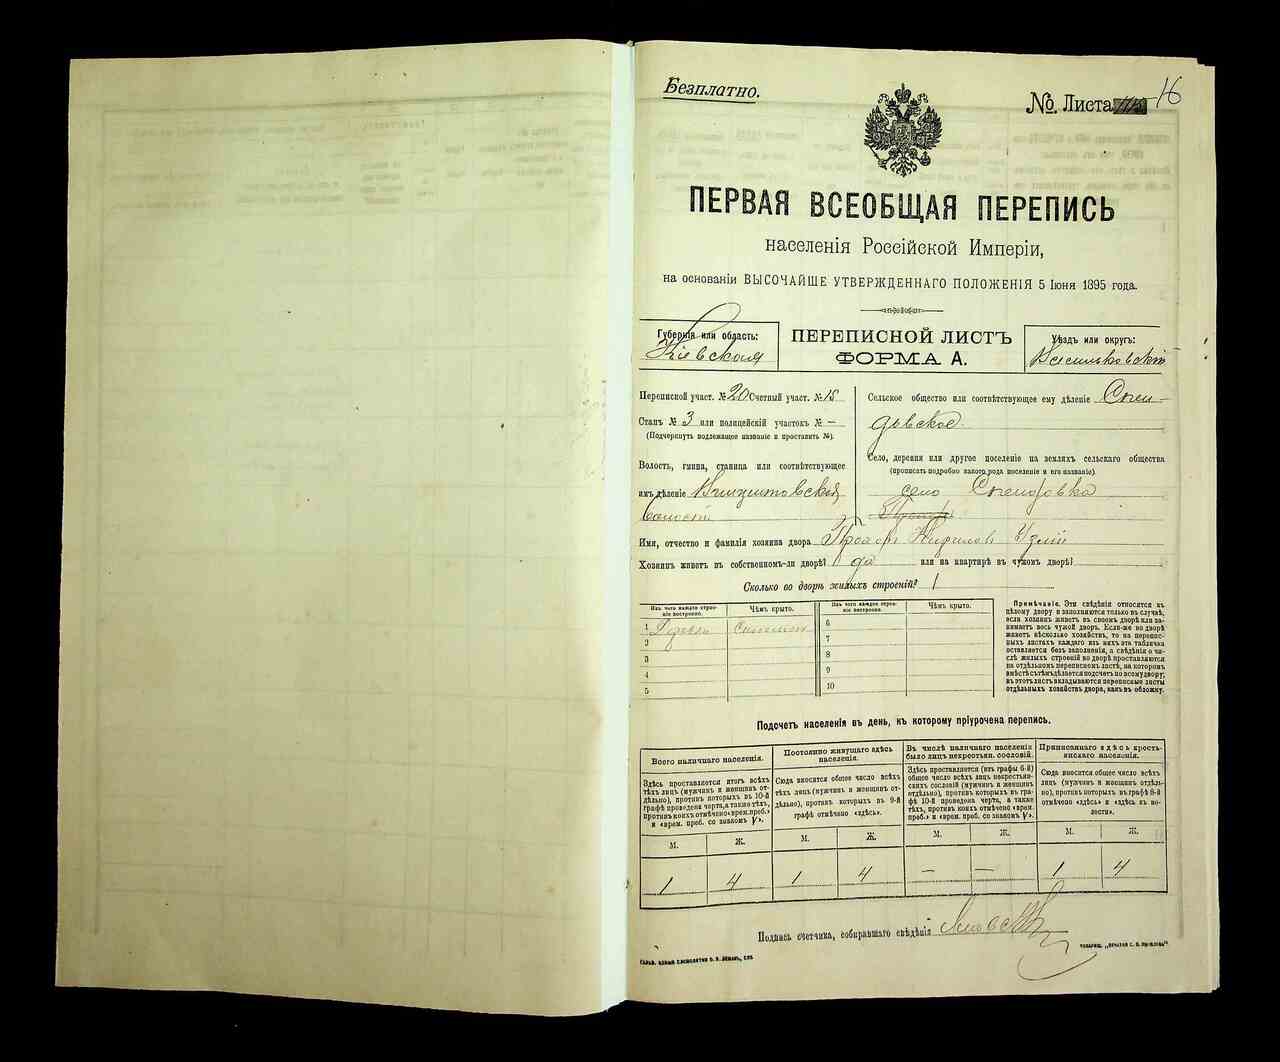 Безплатно.
№ Листа 16
ПЕРВАЯ ВСЕОБЩАЯ ПЕРЕПИСЬ
населенія Россійской Имперіи,
на основаніи ВЫСОЧАЙШЕ УТВЕРЖДЕННАГО ПОЛОЖЕНІЯ 5 Іюня 1895 года.
Губернія или область:
Кіевская
ПЕРЕПИСНОЙ ЛИСТЪ
ФОРМА А.
Уѣздъ или округъ:
Васильковскій
Переписной участ. № 20 Счетный участ. № 15
Станъ № 3 или полицейскій участокъ № —
(Подчеркнуть подлежащее названіе и проставить №).
Волость, гмина, станица или соотвѣтствующее
имъ дѣленіе
волость
Сельское общество или соотвѣтствующее ему дѣленіе
Село, деревня или другое поселеніе на земляхъ сельскаго общества
(прописать подробно какого рода поселеніе и его названіе).
село
Имя, отчество и фамилія хозяина двора Прохоръ Кириловъ
Хозяинъ живетъ въ собственномъ-ли дворѣ? да или на квартирѣ въ чужомъ дворѣ?
Сколько во дворѣ жилыхъ строеній? 1
Изъ чего каждое строеніе построено.
Чѣмъ крыто.
Изъ чего каждое строеніе построено.
Чѣмъ крыто.
1 Дерева Соломой
2
3
4
5
6
7
8
9
10
Примѣчаніе. Эти свѣдѣнія относятся къ
цѣлому двору и заполняются только въ случаѣ,
если хозяинъ живетъ въ своемъ дворѣ или занимаетъ
весь чужой дворъ. Если-же во дворѣ
живетъ нѣсколько хозяйствъ, то на переписныхъ
листахъ каждаго изъ нихъ эта табличка
оставляется безъ заполненія, а свѣдѣнія о числѣ
жилыхъ строеній во дворѣ проставляются
на отдѣльномъ переписномъ листѣ, на которомъ
вмѣстѣ съ тѣмъ дѣлается подсчетъ по всему двору;
въ этотъ листъ вкладываются переписные листы
отдѣльныхъ хозяйствъ двора, какъ въ обложку.
Подсчетъ населенія въ день, къ которому пріурочена перепись.
Всего наличнаго населенія.
Постоянно живущаго здѣсь населенія.
Въ числѣ наличнаго населенія было лицъ некрестьян. сословій.
Приписаннаго здѣсь крестьянскаго населенія.
Здѣсь проставляется итогъ всѣхъ
тѣхъ лицъ (мужчинъ и женщинъ отдѣльно),
противъ которыхъ въ 10-й
графѣ проведена черта, а также тѣхъ,
противъ коихъ отмѣчено «врем. преб.»
и «врем. преб. со знакомъ V».
Сюда вносится общее число всѣхъ
тѣхъ лицъ (мужчинъ и женщинъ отдѣльно),
противъ которыхъ въ 9-й
графѣ отмѣчено «здѣсь».
Здѣсь проставляется (изъ графы 6-й)
общее число всѣхъ лицъ некрестьянскихъ
сословій (мужчинъ и женщинъ
отдѣльно), противъ которыхъ въ графѣ
10-й проведена черта, а также
тѣхъ, противъ коихъ отмѣчено «врем.
преб.» и «врем. преб. со знакомъ V».
Сюда вносится общее число всѣхъ
тѣхъ лицъ (мужчинъ и женщинъ отдѣльно),
противъ которыхъ въ графѣ 8-й
отмѣчено «здѣсь» и «здѣсь въ волости».
М. Ж. М. Ж. М. Ж. М. Ж.
1 4 1 4 — — 1 4
Подпись счетчика, собиравшаго свѣдѣнія